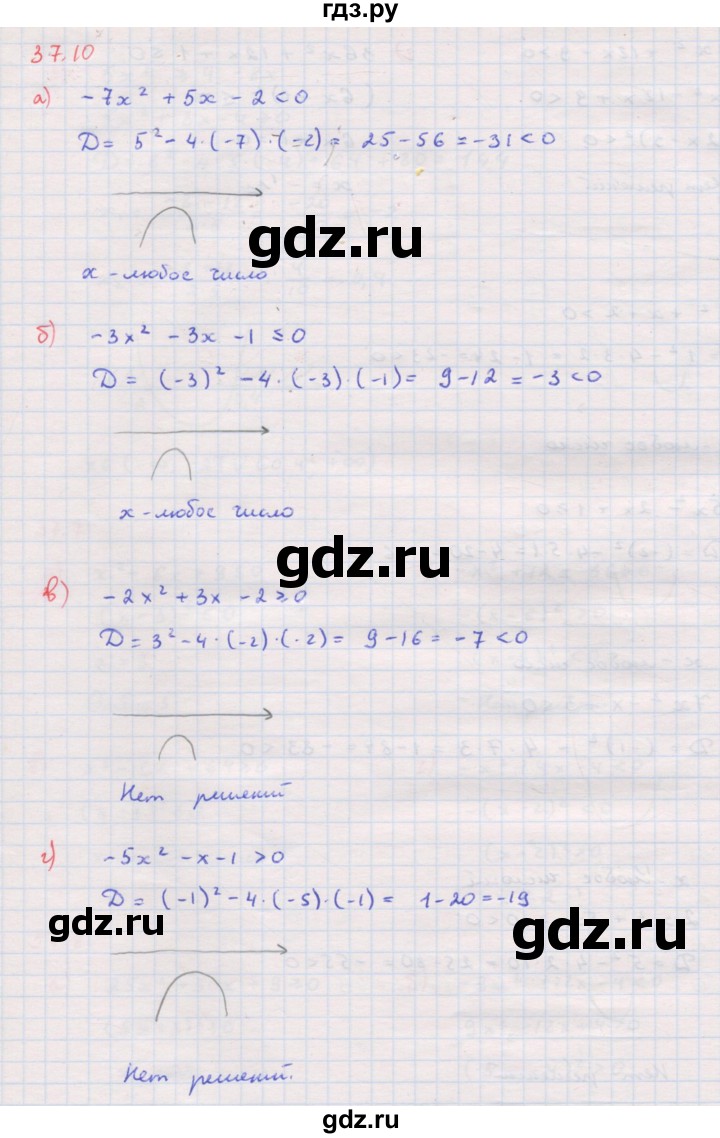 гдз.ру
37.10
а) -7x² + 5x - 2 < 0
D = 5² - 4·(-7)·(-2) = 25 - 56 = -31 < 0
gdz.ru
x - любое число
б) -3x² - 3x - 1 ≤ 0
D = (-3)² - 4·(-3)·(-1) = 9 - 12 = -3 < 0
x - любое число
gdz.ru
в) -2x² + 3x - 2 ≥ 0
D = 3² - 4·(-2)·(-2) = 9 - 16 = -7 < 0
Нет решений
г) -5x² - x - 1 > 0
D = (-1)² - 4·(-5)·(-1) = 1 - 20 = -19
gdz.ru
gdz.ru
Нет решений.
gdz.ru